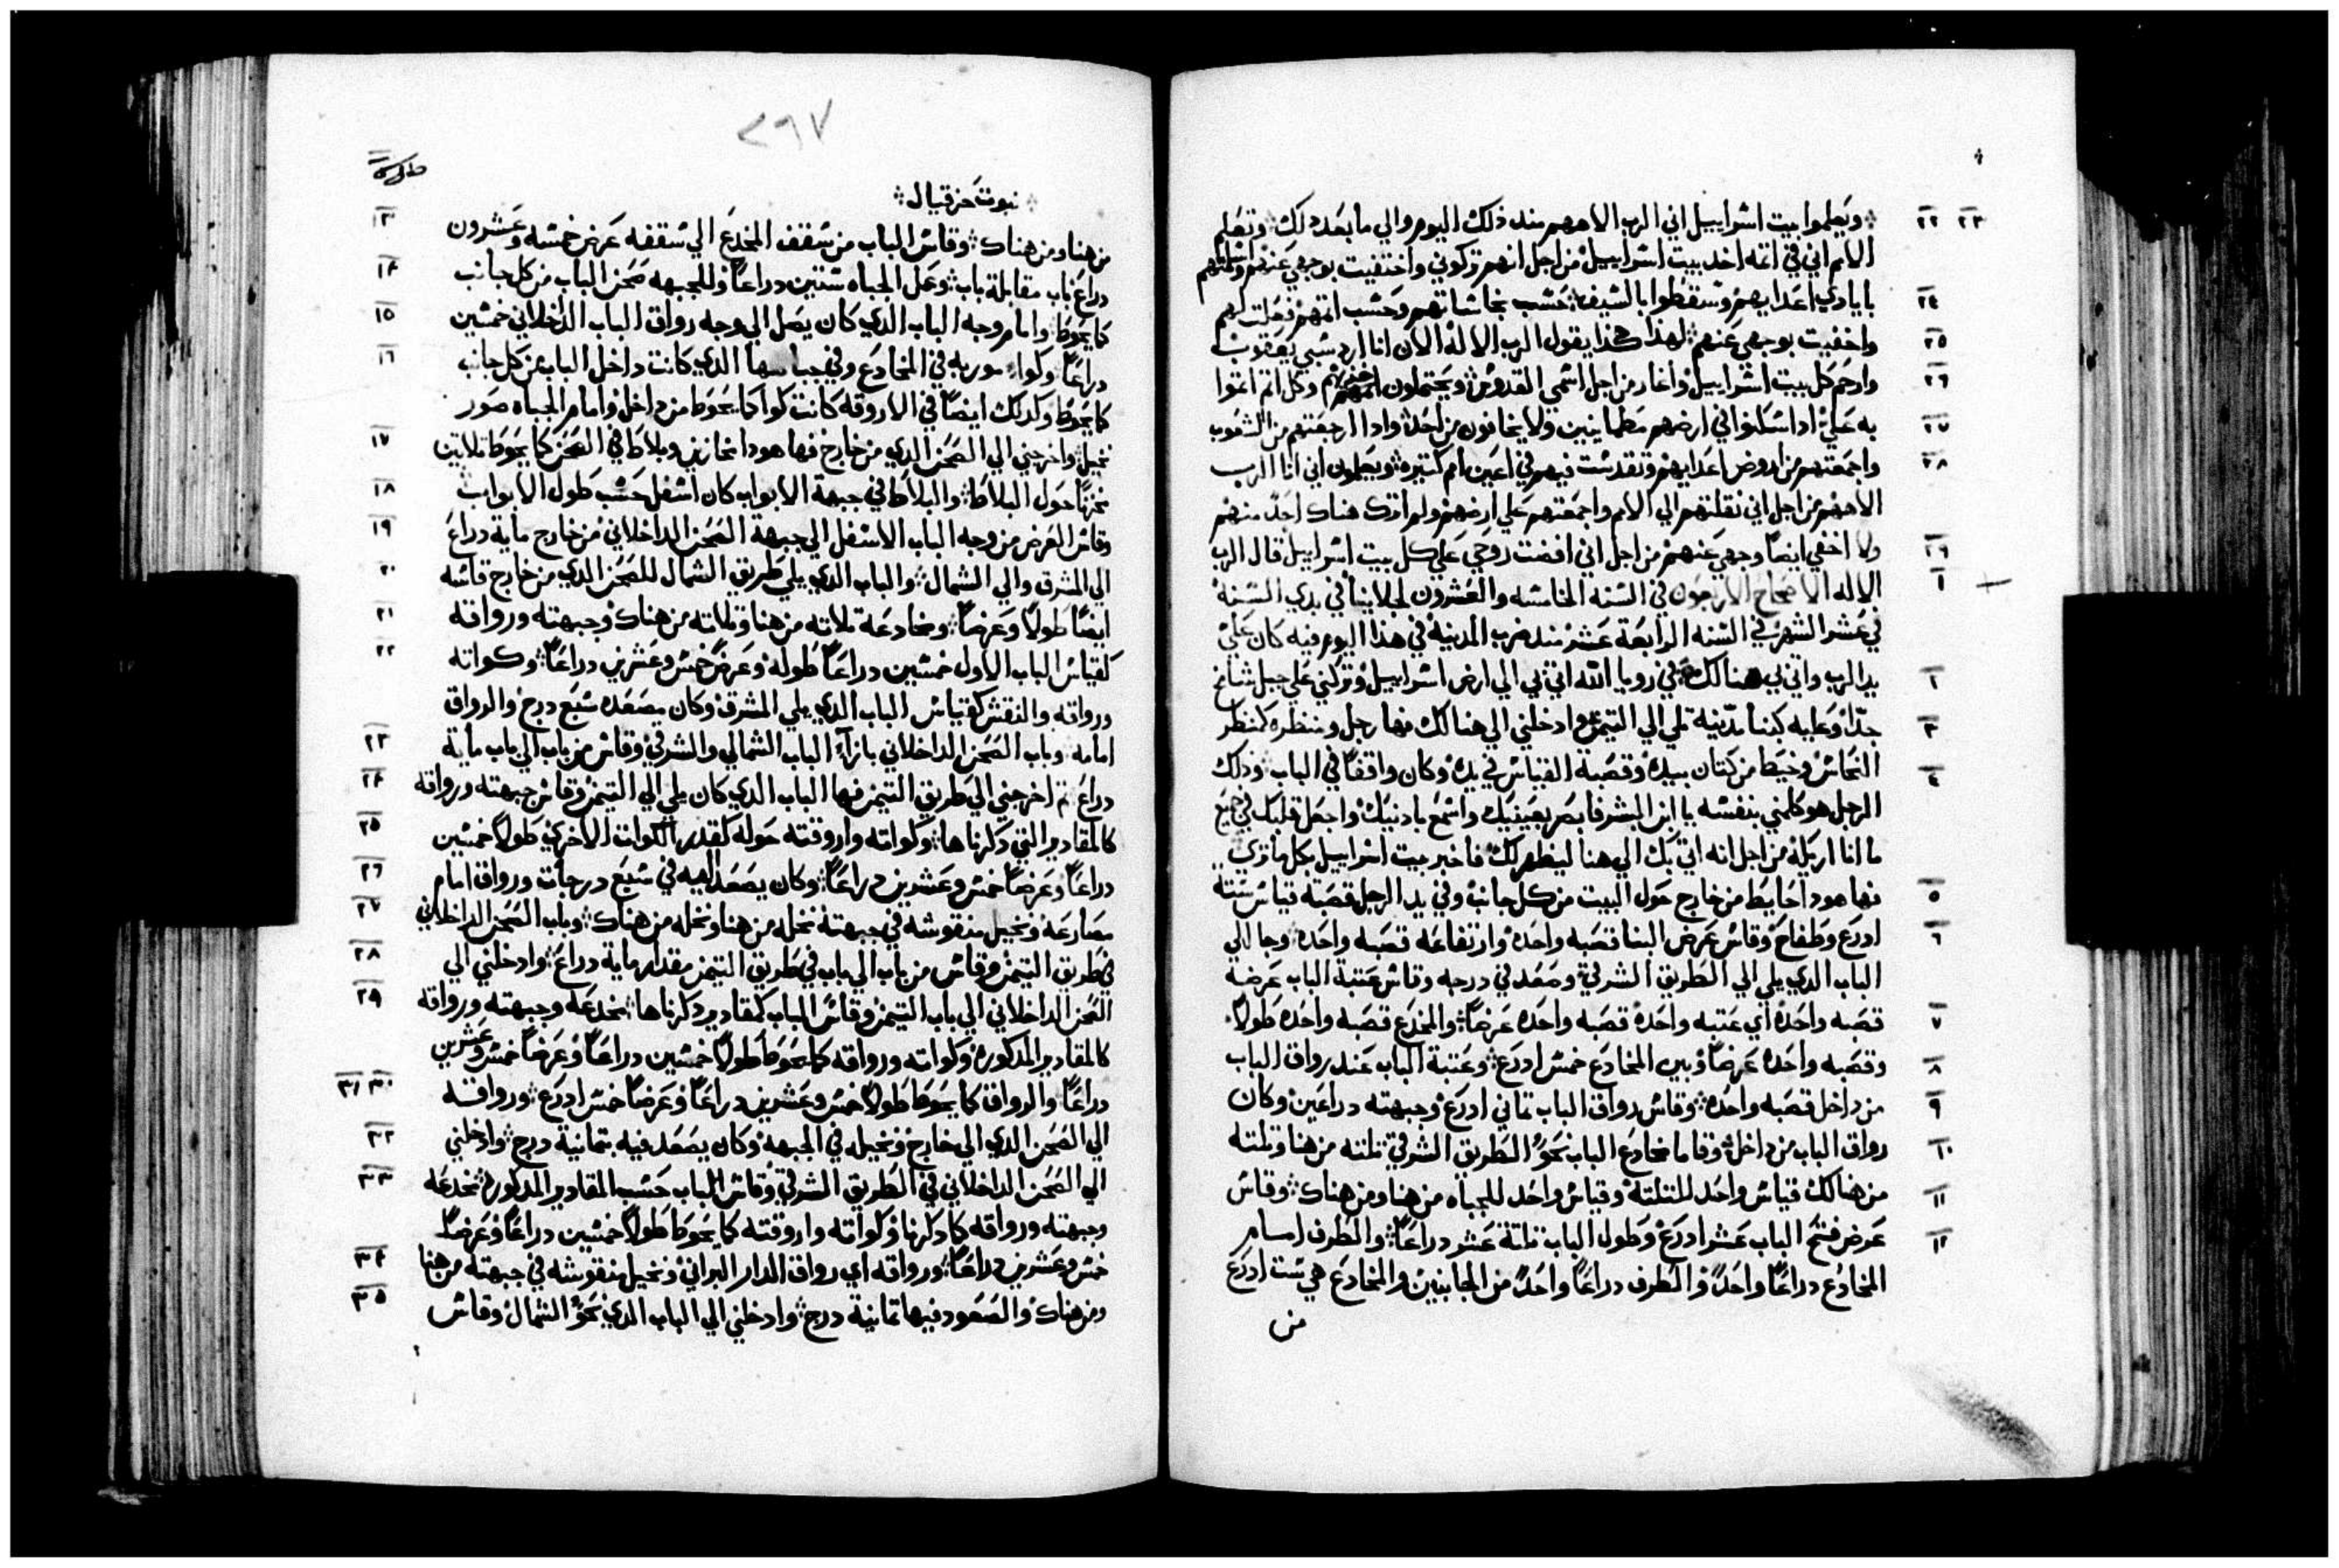 ٢٢ ٢٣ ويعلموا بيت اسراييل اني الرب الاههم مند ذلك اليوم والي ما بعد دلك وتعلم
الامم اني في اتمه اخد بيت اسراييل من اجل انهم تركوني واختفيت بوجهي عنهم واسلمتهم
٢٤ بايادي اعدايهم وسقطوا بالسيف حسب نجاساتهم وحسب اتمهم فعلت لهم
٢٥ واخفيت بوجهي عنهم لهذا هكذا يقول الرب الاله الان انا ارد سبي يعقوب
٢٦ وارحم كل بيت اسراييل واغار من اجل اسمي القدوس ويحتملون وكل اتم اتموا
٢٧ به علي ادا سكنوا في ارضهم مطمانيين ولا يخافون من احد وادا ارجعتهم من الشعوب
٢٨ واجمعتهم من اروض اعدايهم وتقدست فيهم في اعين امم كتيره ويعلمون اني انا الرب
الاههم من اجل اني نقلتهم الي الامم واجمعتهم علي ارضهم ولم اترك هناك احد منهم
٢٩ ولا اخفي ايضا وجهي عنهم من اجل اني افضت روحي علي كل بيت اسراييل قال الرب
١ الاله الاصحاح الاربعون في السنه الخامسه والعشرون لجلاينا في بدي السنه
في عشر الشهر في السنه الرابعة عشر مند ضرب المدينه في هذا اليوم فيه كان علي
٢ يد الرب واتي بي هنالك في رويا الله اتي بي الي ارض اسراييل وتركني علي جبل شامخ
٣ جدا وعليه كبنا مدينه تلي الي التيمن وادخلني الي هنالك فها رجل ومنظره كمنظر
٤ النحاس وخيط من كتان بيده وقصبة القياس في يده وكان واقفا في الباب ودلك
الرجل هو كلمني بنفسه يا ابن البشر فابصر بعينيك واسمع بادنيك واجعل قلبك في جميع
ما انا اريكه من اجل انه اتي بك الي هنا ليظهر لك فاخبر بيت اسراييل بكل ما تري
٥ فها هودا حايط من خارج حول البيت من كل جانب وفي يد الرجل قصبة قياس ستة
٦ ادرع وطفاح وقاس عرض البنا قصبه واحده وارتفاعه قصبه واحده وجا الي
الباب الدي يلي الي الطريق الشرقي وصعد في درجه وقاس عتبة الباب عرضه
٧ قصبه واحده اي عتبه واحده قصبه واحده عرضا والمخدع قصبه واحده طولا
٨ وقصبه واحده عرضا وبين المخادع خمس ادرع وعتبة الباب عند رواق الباب
٩ من داخل قصبه واحده وقاس رواق الباب تماني ادرع وجبهته دراعين وكان
١٠ رواق الباب من داخل وقاما مخادع الباب نحو الطريق الشرقي تلته من هنا وتلته
١١ من هنالك قياس واحد للتلتة وقياس واحد للجباه من هنا ومن هناك وقاس
١٢ عرض فتح الباب عشر ادرع وطول الباب تلتة عشر دراعا والطرف امام
المخادع دراعا واحد والطرف دراعا واحد من الجانبين والمخادع هي ست ادرع
من
٢٩٧
نبوت حزقيال
١٣ من هنا ومن هناك وقاس الباب من سقف المخدع الي سقفه عرض خمسه وعشرون
١٤ دراع باب مقابلة باب وعمل الجباه ستين دراعا وللجبهه صحن الباب من كل جانب
١٥ كما يحوط وامام وجه الباب الدي كان يصل الي وجه رواق الباب الداخلاني خمسين
١٦ دراعا وكواء موربه في المخادع وفي الدي كانت داخل الباب من كل جانب
كما يحوط وكدلك ايضا في الاروقه كانت كوا كما يحوط من داخل وامام الجباه صور
١٧ نخيل واخرجني الي الصحن الدي من خارج فها هودا مخازين وبلاط في الصحن كما يحوط تلاتين
١٨ مخزنا حول البلاط والبلاط في جبهة الابواب كان اسفل حسب طول الابواب
١٩ وقاس العرض من وجه الباب الاسفل الي جبهة الصحن الداخلاني من خارج ماية دراع
٢٠ الي المشرق والي الشمال والباب الدي يلي طريق الشمال للصحن الدي من خارج قاسه
٢١ ايضا طولا وعرضا ومخادعه تلاته من هنا وتلاته من هناك وجبهته ورواقه
٢٢ كقياس الباب الاول خمسين دراعا طوله وعرض خمس وعشرين دراعا وكواته
ورواقه والنقش كقياس الباب الدي يلي المشرق وكان يصعده سبع درج والرواق
٢٣ امامه وباب الصحن الداخلاني بازاء الباب الشمالي والشرقي وقاس من باب الي باب ماية
٢٤ دراع تم اخرجني الي طريق التيمن فها الباب الدي كان يلي الي التيمن وقاس جبهته ورواقه
٢٥ كالمقادير التي دكرناها وكواته واروقته حوله كقدر الكوات الاخري طولا خمسين
٢٦ دراعا وعرضا خمس وعشرين دراعا وكان يصعد اليه في سبع درجات ورواق امام
٢٧ مصارعه ونخيل منقوشه في جبهتة نخله من هنا ونخله من هناك وباب الصحن الداخلاني
٢٨ في طريق التيمن وقاس من باب الي باب في طريق التيمن مقدار ماية دراع وادخلني الي
٢٩ الصحن الداخلاني الي باب التيمن وقاس الباب كمقادير دكرناها مخدعه وجبهته ورواقه
كالمقادير المدكوره وكواته ورواقه كما يحوط طولا خمسين دراعا وعرضا خمس وعشرين
٣٠ ٣١ دراعا والرواق كما يحوط طولا خمس وعشرين دراعا وعرضا خمس ادرع ورواقه
٣٢ الي الصحن الدي الي خارج ونخيله في الجبهة وكان يصعد فيه بتمانية درج وادخلني
٣٣ الي الصحن الداخلاني في الطريق الشرقي وقاس الباب حسب المقادير المدكوره مخدعه
وجبهته ورواقه كما دكرنا وكواته واروقته كما يحوط طولا خمسين دراعا وعرضا
٣٤ خمس وعشرين دراعا ورواقه اي رواق الدار البراني ونخيل منقوشه في جبهته من هنا
٣٥ ومن هناك والصعود فيها تمانية درج وادخلني الي الباب الدي نحو الشمال وقاس